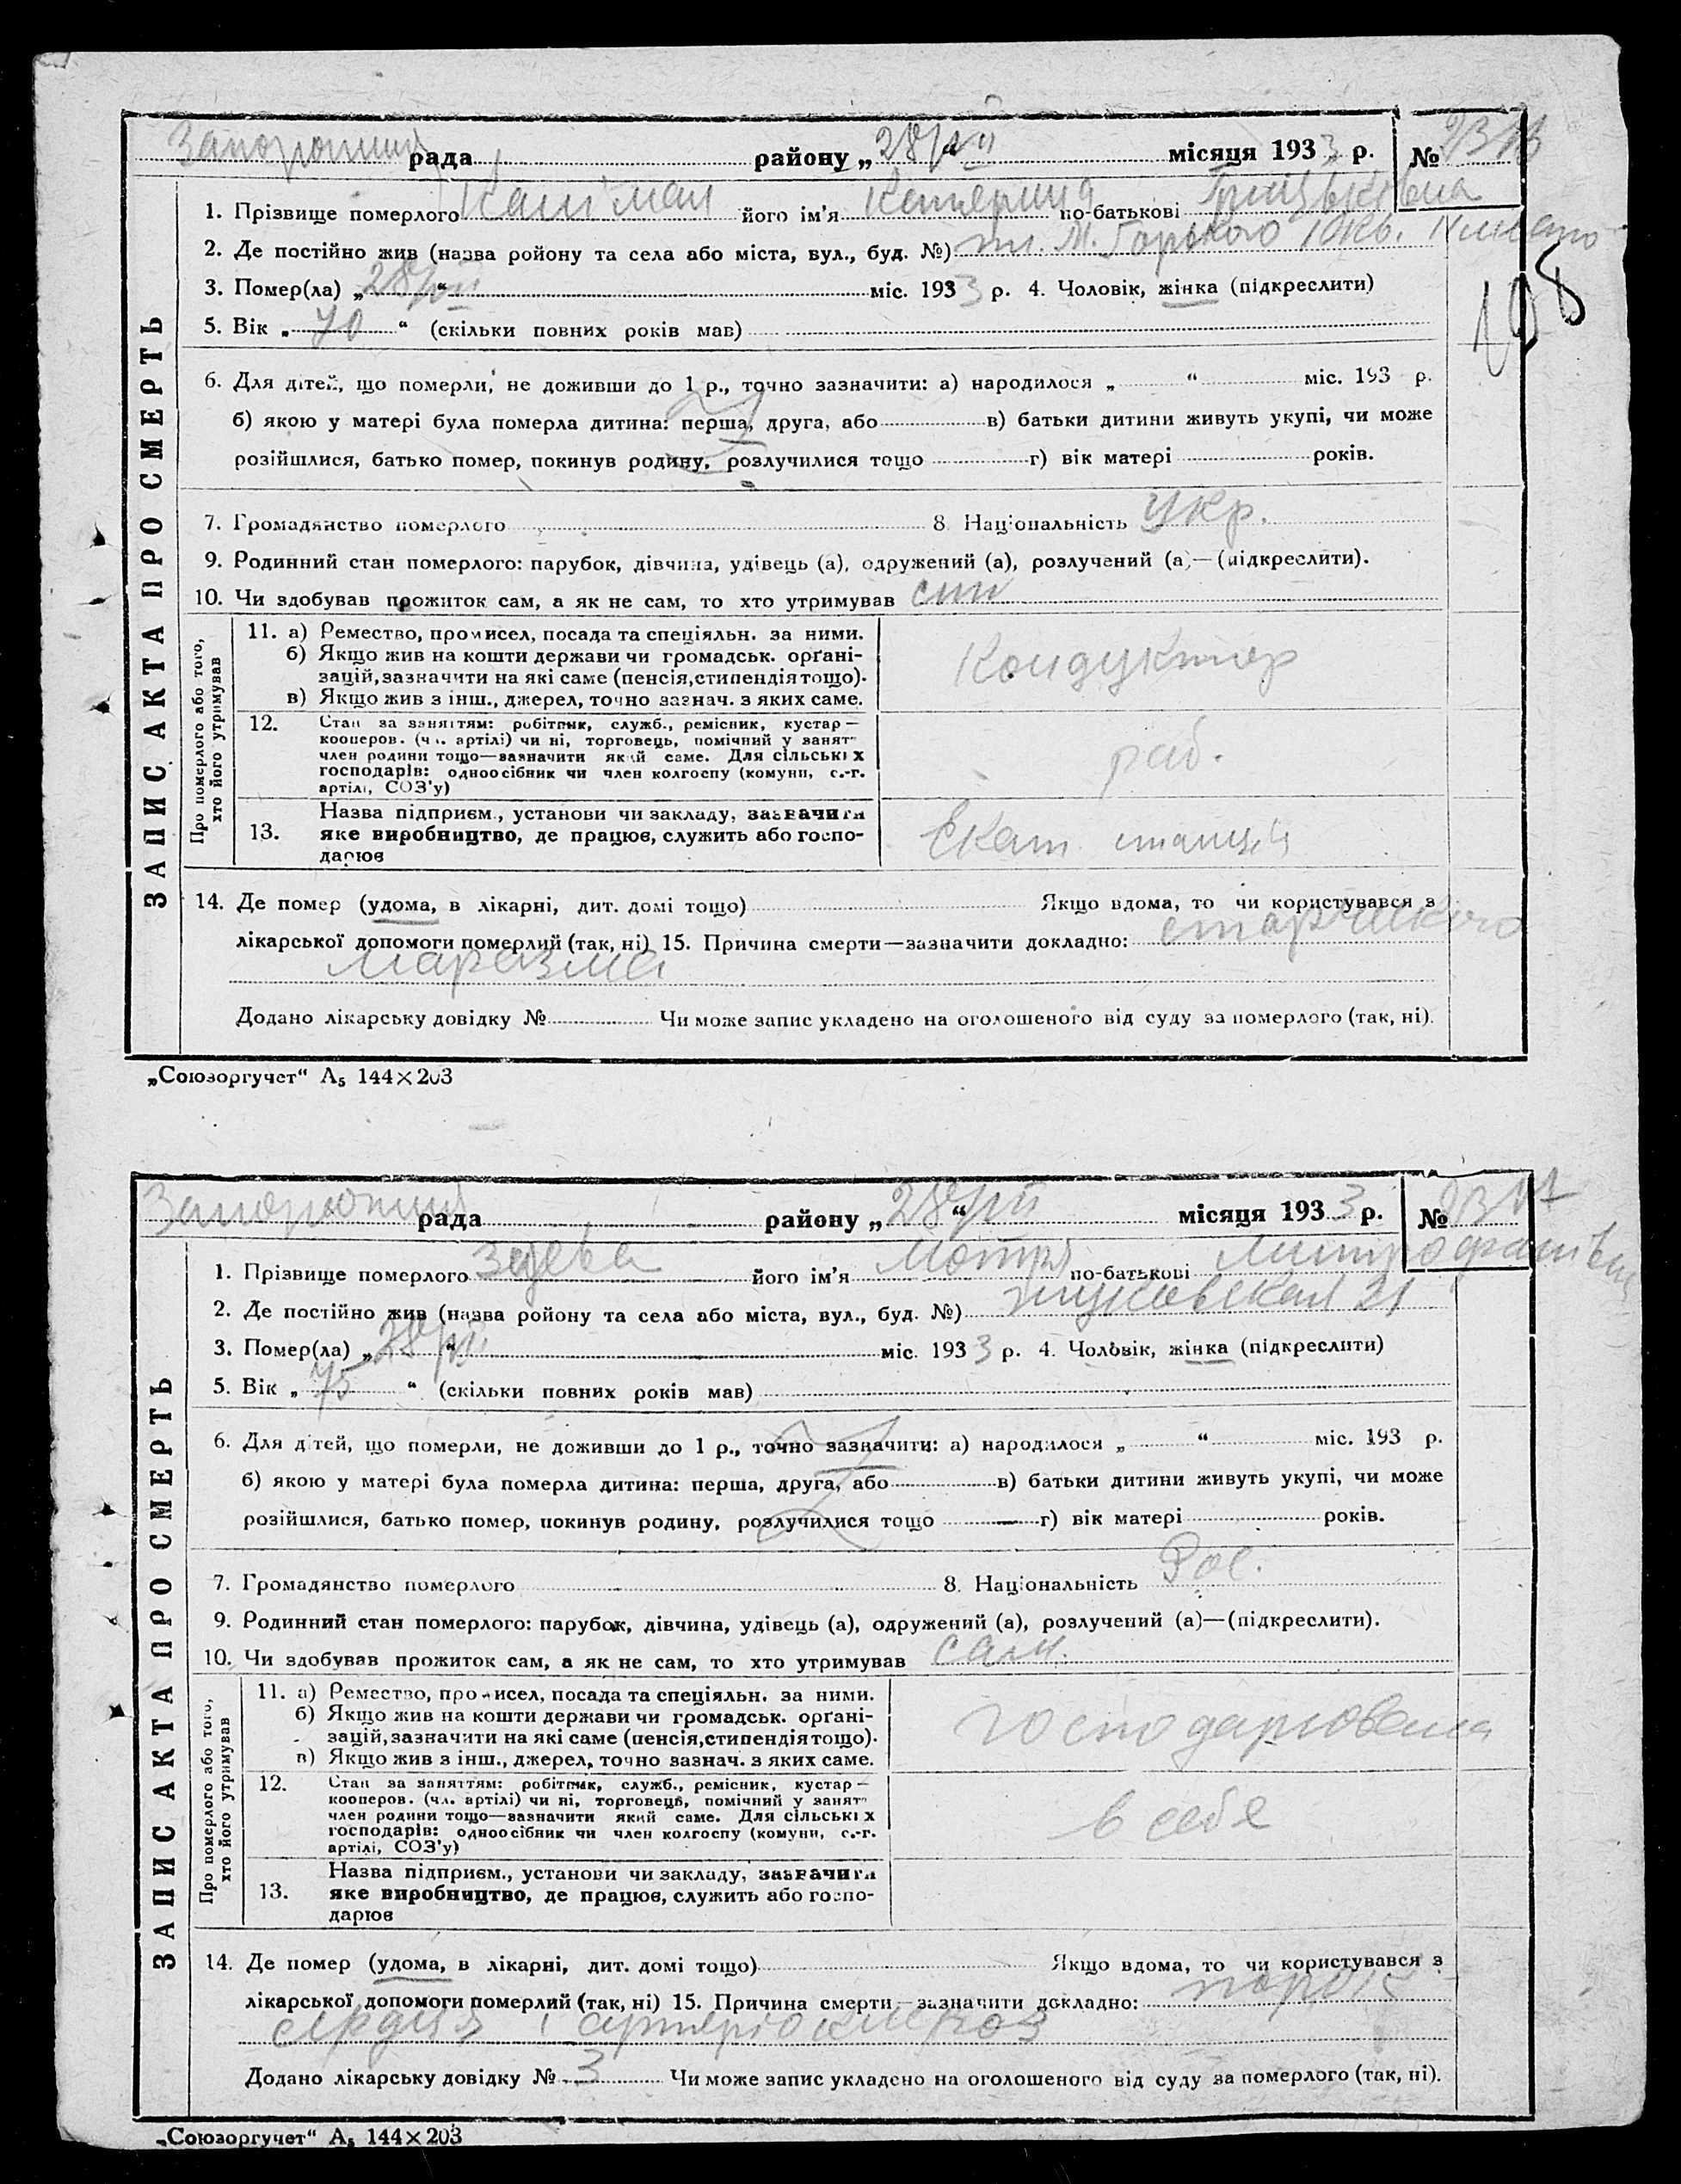 Запорожская рада району „28/VII“ місяця 1933 р. №
1. Прізвище померлого його ім'я Катерина по-батькові Грицьківна
2. Де постійно жив (назва ройону та села або міста, вул., буд. №) пл. М. Горького 10 кв.
3. Помер(ла) „28/VII“ міс. 1933 р. 4. Чоловік, жінка (підкреслити)
5. Вік „70“ (скільки повних років мав)
6. Для дітей, що померли, не доживши до 1 р., точно зазначити: а) народилося „ “ міс. 193 р.
б) якою у матері була померла дитина: перша, друга, або в) батьки дитини живуть укупі, чи може
розійшлися, батько помер, покинув родину, розлучилися тощо г) вік матері років.
7. Громадянство померлого 8. Національність Укр.
9. Родинний стан померлого: парубок, дівчина, удівець (а), одружений (а), розлучений (а)—(підкреслити).
10. Чи здобував прожиток сам, а як не сам, то хто утримував син
Про померлого або того, хто його утримував
11. а) Ремество, промисел, посада та спеціяльн. за ними.
б) Якщо жив на кошти держави чи громадськ. орґані-
зацій, зазначити на які саме (пенсія, стипендія тощо).
в) Якщо жив з інш., джерел, точно зазнач. з яких саме.
Кондуктор
12. Стан за заняттям: робітник, служб., ремісник, кустар—
кооперов. (чл. артілі) чи ні, торговець, помічний у занят.
член родини тощо—зазначити який саме. Для сільських
господарів: одноосібник чи член колгоспу (комуни, с.-г.
артілі, СОЗ'у)
раб.
13. Назва підприєм., установи чи закладу, зазначити
яке виробництво, де працює, служить або госпо-
дарює
Екат. станция
14. Де помер (удома, в лікарні, дит. домі тощо) Якщо вдома, то чи користувався з
лікарської допомоги померлий (так, ні) 15. Причина смерти—зазначити докладно: старческого
маразма
Додано лікарську довідку № Чи може запис укладено на оголошеного від суду за померлого (так, ні).
ЗАПИС АКТА ПРО СМЕРТЬ
108
„Союзоргучет“ А₅ 144×203
Запорожская рада району „28/VII“ місяця 1933 р. №
1. Прізвище померлого його ім'я Мотря по-батькові Митрофанівна
2. Де постійно жив (назва ройону та села або міста, вул., буд. №) Жуковская 21
3. Помер(ла) „28/VII“ міс. 1933 р. 4. Чоловік, жінка (підкреслити)
5. Вік „75“ (скільки повних років мав)
6. Для дітей, що померли, не доживши до 1 р., точно зазначити: а) народилося „ “ міс. 193 р.
б) якою у матері була померла дитина: перша, друга, або в) батьки дитини живуть укупі, чи може
розійшлися, батько помер, покинув родину, розлучилися тощо г) вік матері років.
7. Громадянство померлого 8. Національність Рос.
9. Родинний стан померлого: парубок, дівчина, удівець (а), одружений (а), розлучений (а)—(підкреслити).
10. Чи здобував прожиток сам, а як не сам, то хто утримував сам.
Про померлого або того, хто його утримував
11. а) Ремество, промисел, посада та спеціяльн. за ними.
б) Якщо жив на кошти держави чи громадськ. орґані-
зацій, зазначити на які саме (пенсія, стипендія тощо).
в) Якщо жив з інш., джерел, точно зазнач. з яких саме.
господарювала
12. Стан за заняттям: робітник, служб., ремісник, кустар—
кооперов. (чл. артілі) чи ні, торговець, помічний у занят.
член родини тощо—зазначити який саме. Для сільських
господарів: одноосібник чи член колгоспу (комуни, с.-г.
артілі, СОЗ'у)
в себя
13. Назва підприєм., установи чи закладу, зазначити
яке виробництво, де працює, служить або госпо-
дарює
14. Де помер (удома, в лікарні, дит. домі тощо) Якщо вдома, то чи користувався з
лікарської допомоги померлий (так, ні) 15. Причина смерти—зазначити докладно: порок
сердця і артеріосклероз
Додано лікарську довідку № 3 Чи може запис укладено на оголошеного від суду за померлого (так, ні).
ЗАПИС АКТА ПРО СМЕРТЬ
„Союзоргучет“ А₅ 144×203